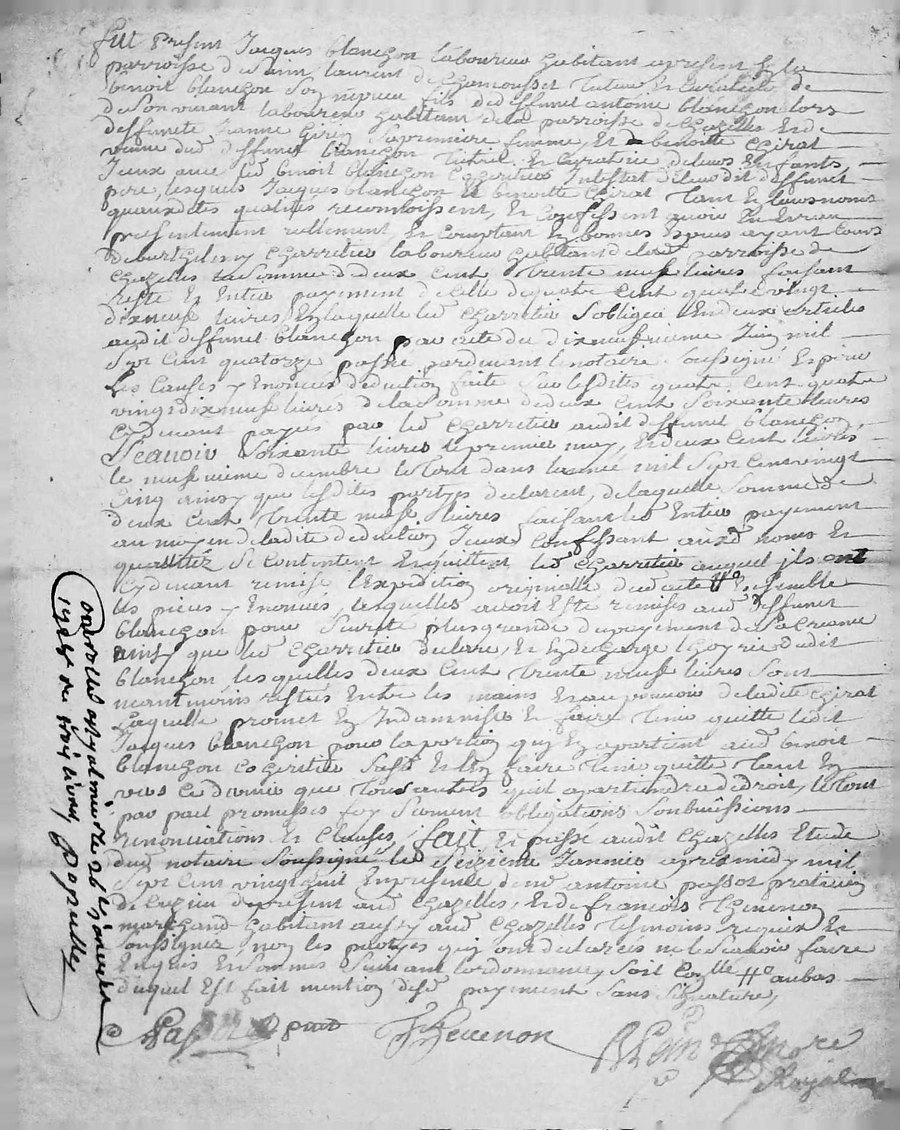 fut present Jacques blançon laboureur habitant a present en la
parroisse de saint laurent de Chamousset tuteur et curateur de
benoit blançon son nepveu fils de deffunct antoine blançon lors
de son vivant laboureur habitant de la parroisse de Chazelles et de
deffuncte Jeanne Girin sa premiere femme, Et de benoitte Chirat
veuve dud deffunct blançon tutrice et curatrice de leurs Enfants,
Iceux avec led benoit blançon coheritiers Intestat dudit deffunct
pere, lesquels Jacques blançon et benoitte Chirat tant en leurs noms
quauxdites qualités reconnoissent, Et Confessent avoir Eu et receu
presentement reellement, Et comptant en bonnes especes ayant cours
de Charretier laboureur habitant de lad parroisse de
Chazelles la somme de deux cent trente neuf livres faisant
reste et Entier payement de celle de quatre cent quatre vingt
dixneuf livres En laquelle led Charretier s'obligea En deux articles
audit deffunct blançon par acte du dixneufvieme Juin mil
sept cent quatorze passé pardevant le notaire soussigné Et pour
les causes y Enoncées deduction faite sur lesdites quatre cent quatre
vingt dix neuf livres de la somme de deux cent soixante livres
cy devant payée par led Charretier audit deffunct blançon
scavoir soixante livres le premier may, Et deux cent livres
le neufvieme decembre le tout dans l'année mil sept cent vingt
cinq ainsy que lesdites partyes declarent, de laquelle somme de
deux cent trente neuf livres faisant led Entier payement
au moyen de ladite deduction Iceux confessant auxd noms et
qualittés se contentent En quittent led Charretier auquel ils ont
cy devant remise l'expedition originelle dud acte Ensemble
les pieces y Enoncées, lesquelles avoit Esté remises aud deffunct
blançon pour sureté plus grande du payement de sa creance
ainsy que led Charretier declare, Et En decharge l'hoyrie dudit
blançon lesquelles deux cent trente neuf livres sont
neantmoins restées Entre les mains Et au pouvoir de ladite Chirat
laquelle promet En Indamniser Et faire tenir quitte ledit
Jacques blançon pour la portion quy En apartient aud benoit
blançon coheritier susd Et l'En faire tenir quitte tant
vers ce dernier que tous autres qu'il apartiendra de droit, le tout
par pact promesses foy serment obligations soubmissions
renonciations et clauses, fait Et passé audit Chazelles Etude
dud notaire soussigné le seizieme Janvier apres midy mil
sept cent vingt huit En presence de antoine passot praticien
de present aud Chazelles, Et de françois Thevenon
marchand habitant aussy aud Chazelles tesmoins requis Et
soussignez non les partyes quy ont declarés ne le scavoir faire
Enquis Et sommés suivant l'ordonnance, soit au bas
duquel Est fait mention dud payement sans signature,
Passot present Thevenon
Royal
Controllé a St galmier le 26e janvier
1728 receu trois livres